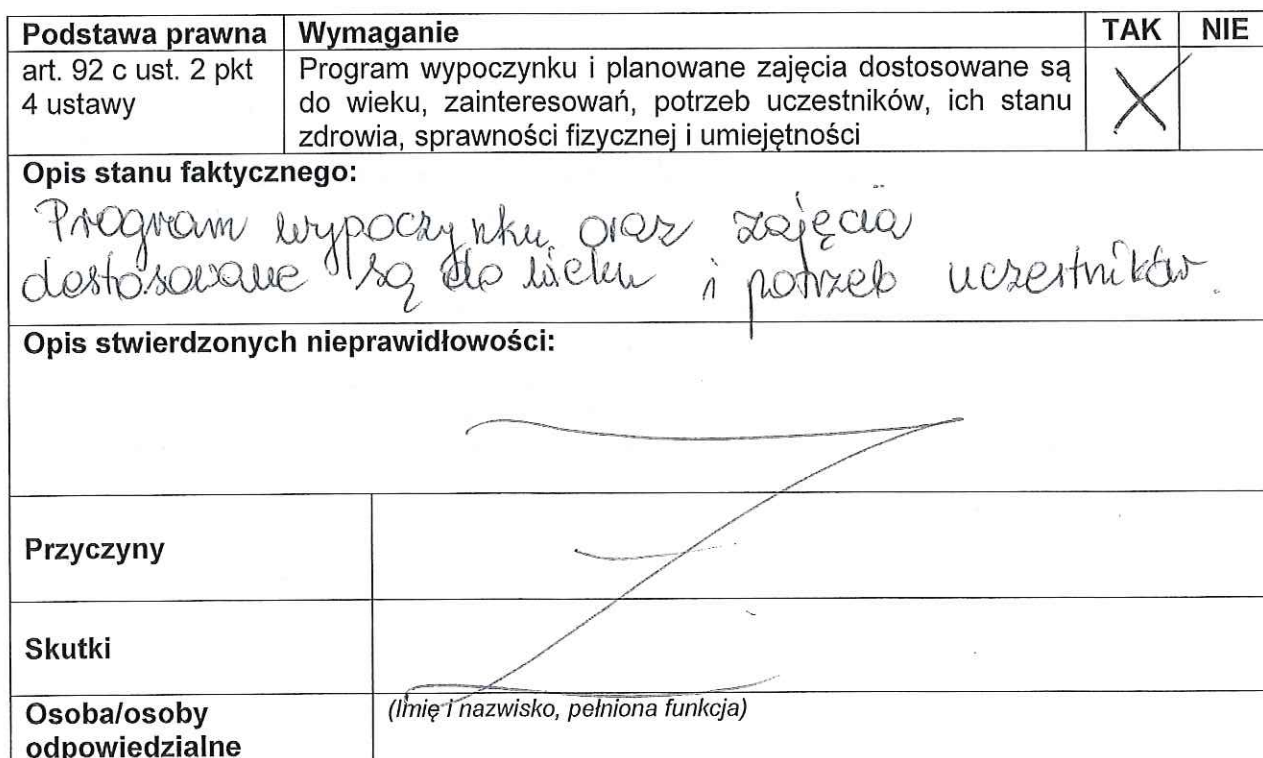 Podstawa prawna Wymaganie TAK NIE
art. 92 c ust. 2 pkt 4 ustawy
Program wypoczynku i planowane zajęcia dostosowane są
do wieku, zainteresowań, potrzeb uczestników, ich stanu
zdrowia, sprawności fizycznej i umiejętności
X
Opis stanu faktycznego:
Program wypoczynku oraz zajęcia
dostosowane są do wieku i potrzeb uczestników.
Opis stwierdzonych nieprawidłowości:
Przyczyny
Skutki
Osoba/osoby
odpowiedzialne
(Imię i nazwisko, pełniona funkcja)